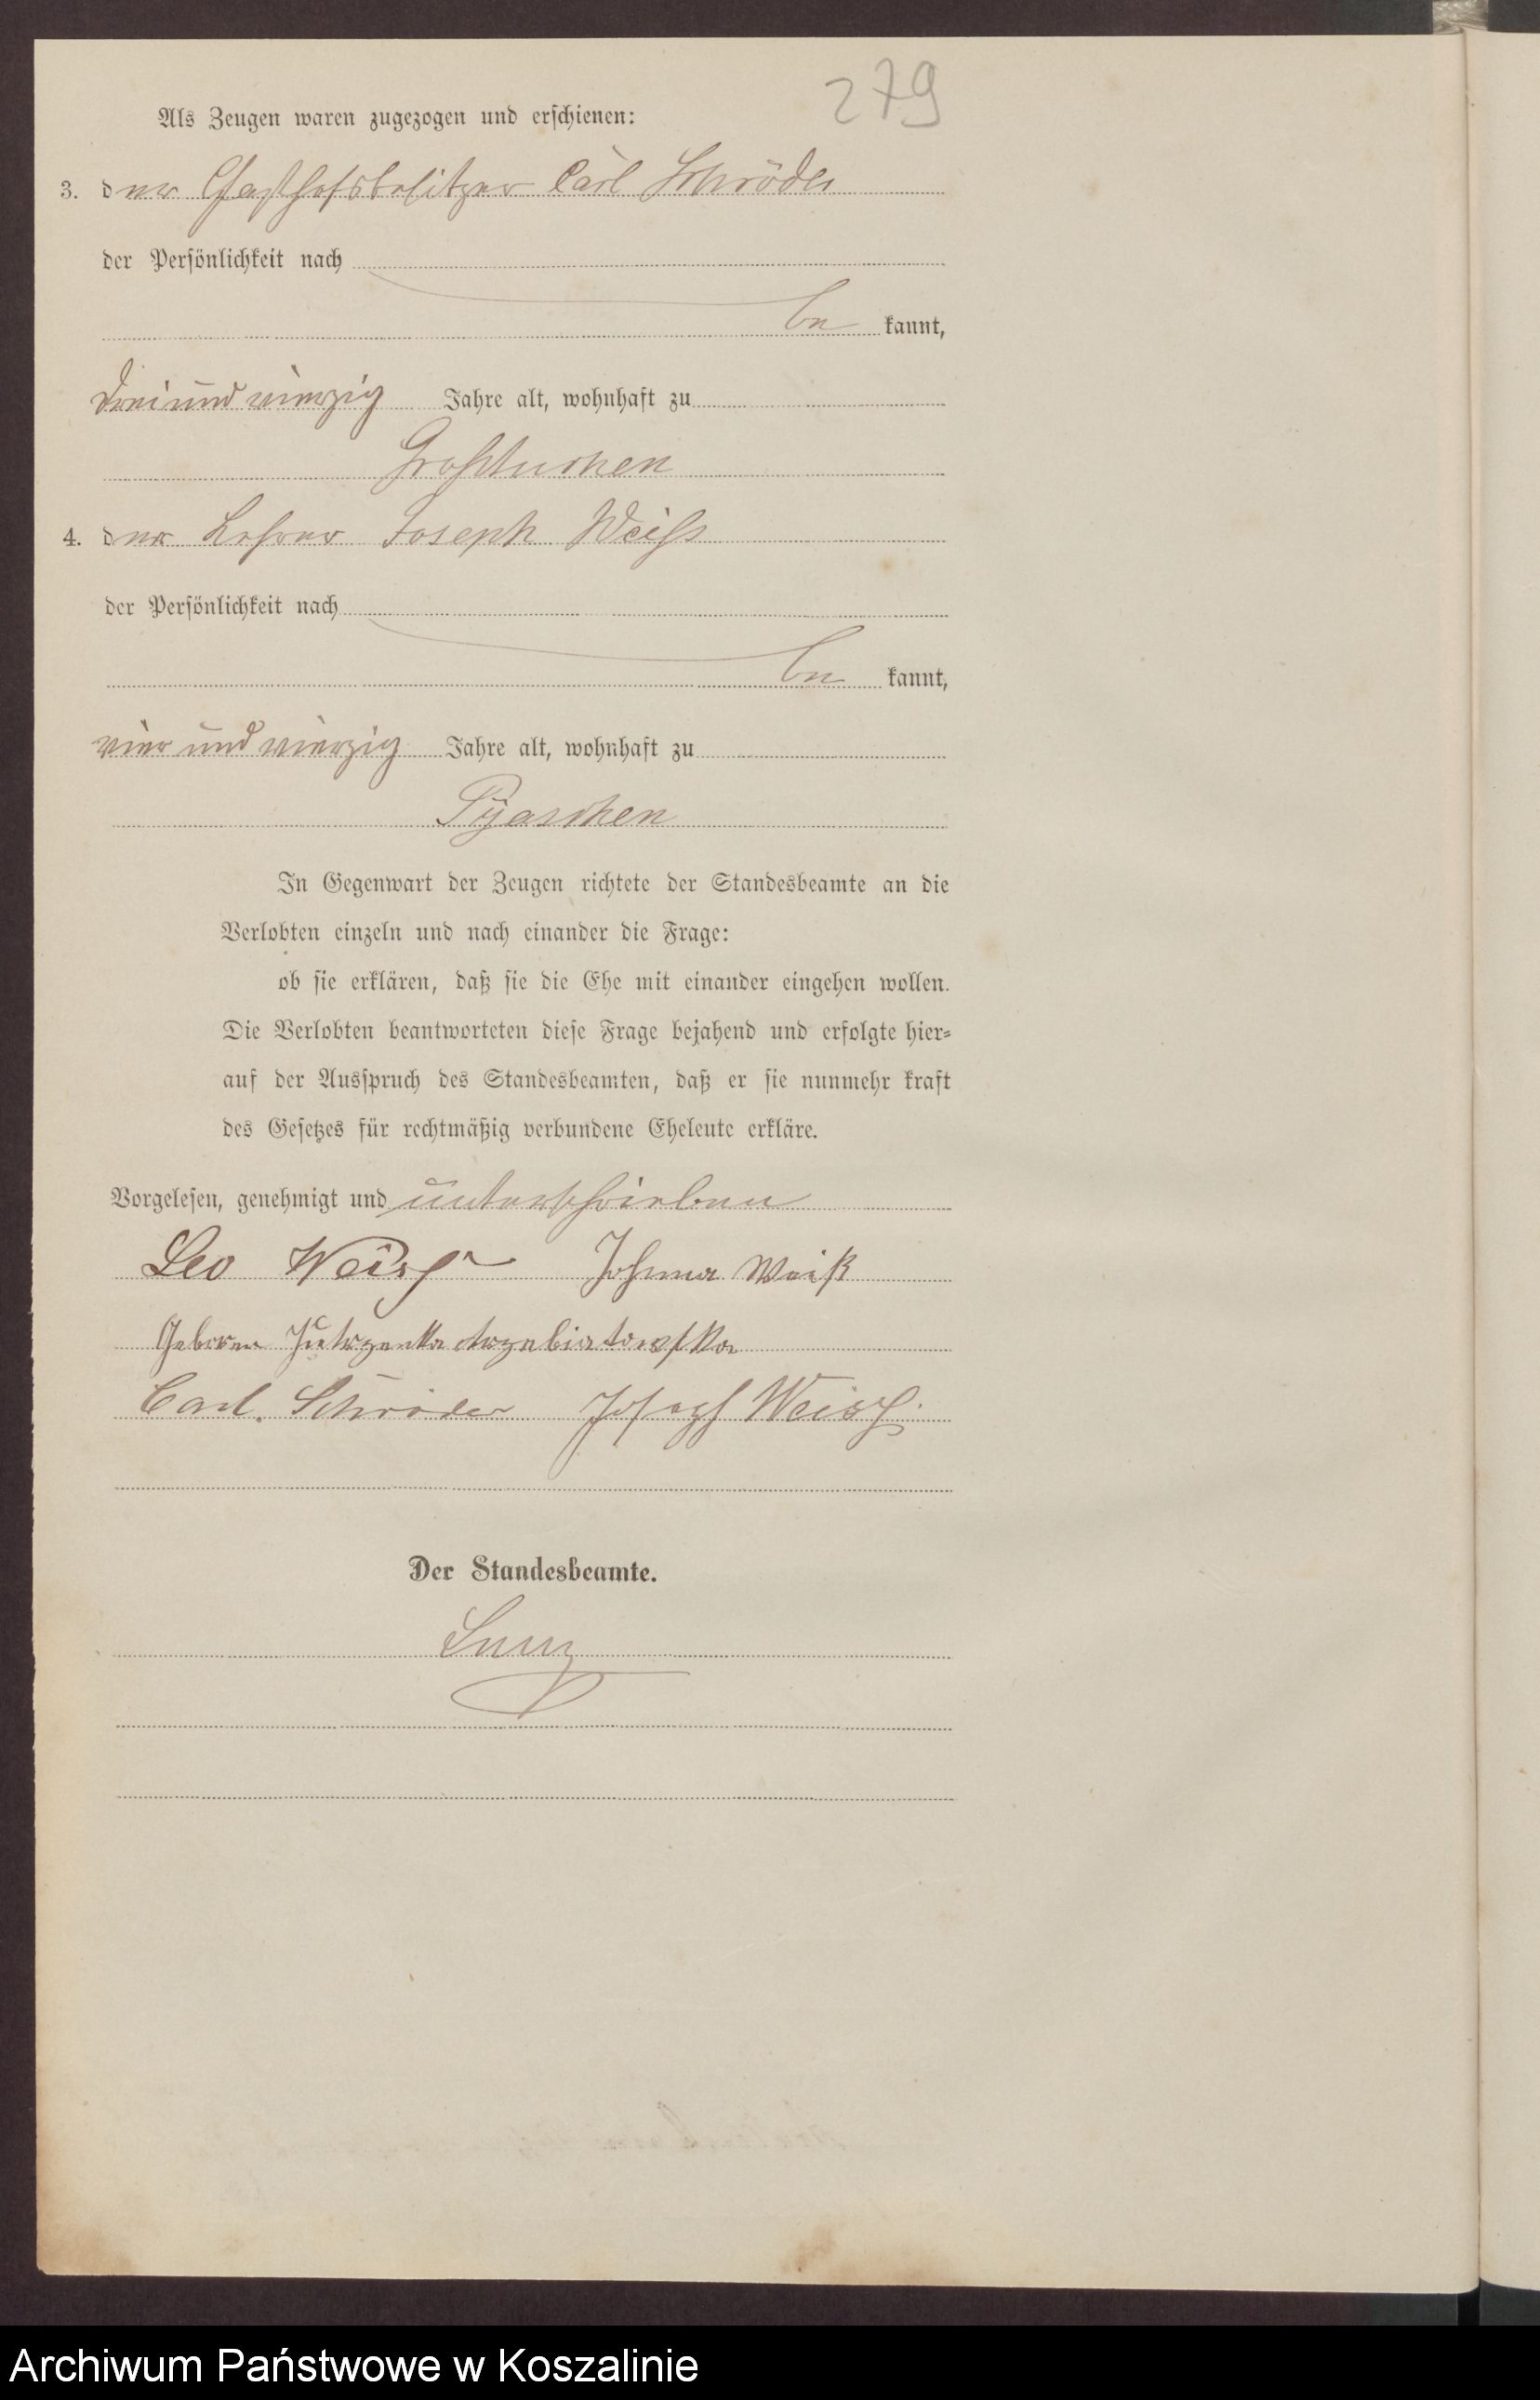 279
Als Zeugen waren zugezogen und erschienen:
3. der Gasthofsbesitzer Carl Schröder
der Persönlichkeit nach
be kannt,
drei und vierzig Jahre alt, wohnhaft zu
Großtuchen
4. der Lehrer Joseph Weiß
der Persönlichkeit nach
be kannt,
vier und vierzig Jahre alt, wohnhaft zu
Pyaschen
In Gegenwart der Zeugen richtete der Standesbeamte an die
Verlobten einzeln und nach einander die Frage:
ob sie erklären, daß sie die Ehe mit einander eingehen wollen.
Die Verlobten beantworteten diese Frage bejahend und erfolgte hier-
auf der Ausspruch des Standesbeamten, daß er sie nunmehr kraft
des Gesetzes für rechtmäßig verbundene Eheleute erkläre.
Vorgelesen, genehmigt und unterschrieben
Leo Weiß Johanna Weiß
Geboren Jutrzenka Trzebiatowska
Carl Schröder Joseph Weiß.
Der Standesbeamte.
Archiwum Państwowe w Koszalinie